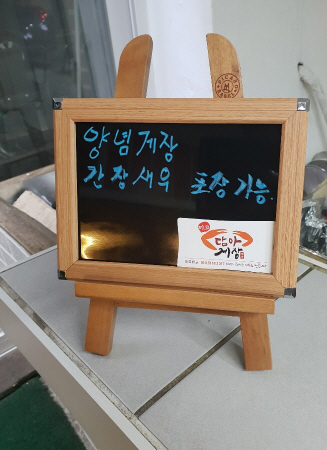 양념게장
간장새우 포장가능
담아
게상